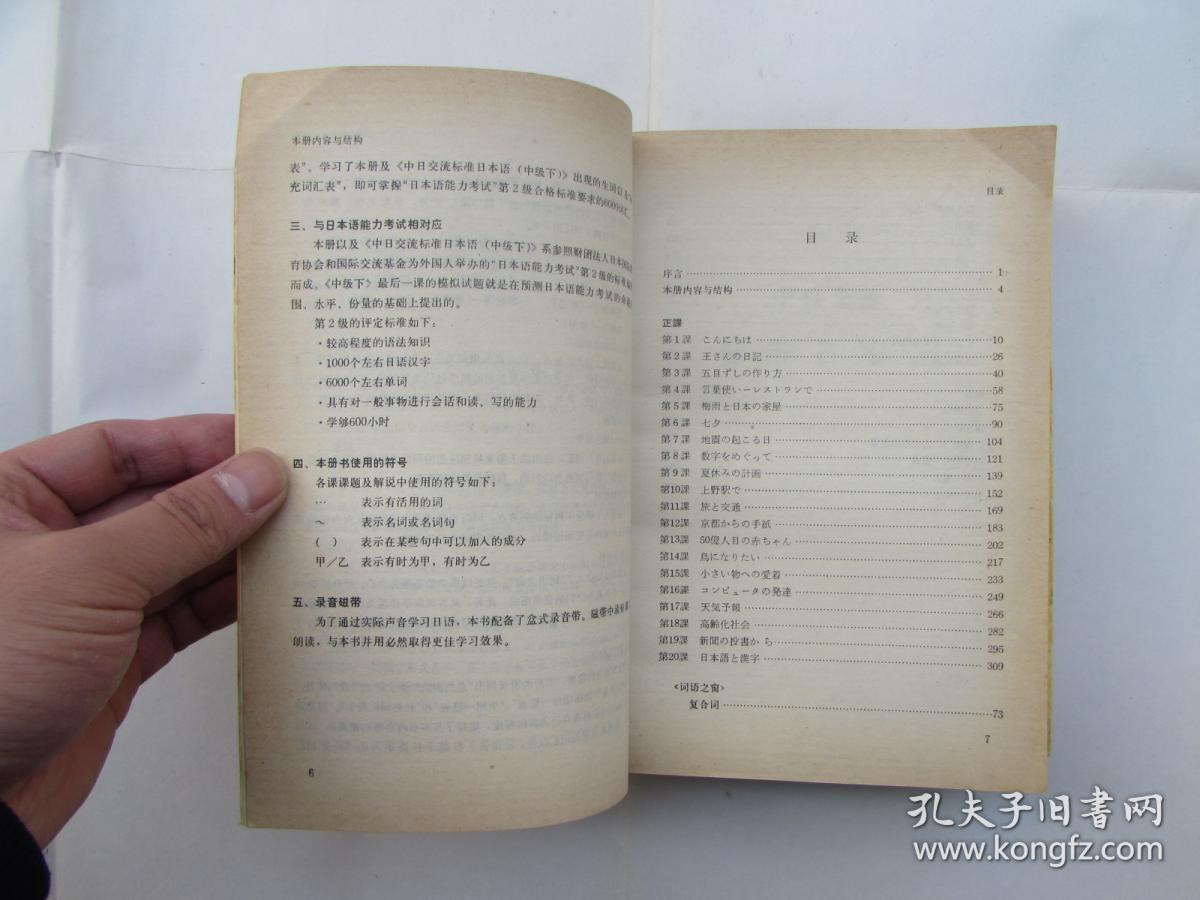 本册内容与结构
表”。学习了本册及《中日交流标准日本语（中级下）》出现的生词以
充词汇表”，即可掌握“日本语能力考试”第2级合格标准要求的6000
三、与日本语能力考试相对应
本册以及《中日交流标准日本语（中级下）》系参照财团法人日本国际
育协会和国际交流基金为外国人举办的“日本语能力考试”第2级的标准
而成。《中级下》最后一课的模拟试题就是在预测日本语能力考试的命题
围、水平、份量的基础上提出的。
第2级的评定标准如下：
·较高程度的语法知识
·1000个左右日语汉字
·6000个左右单词
·具有对一般事物进行会话和读、写的能力
·学够600小时
四、本册书使用的符号
各课课题及解说中使用的符号如下：
… 表示有活用的词
～ 表示名词或名词句
（ ） 表示在某些句中可以加入的成分
甲／乙 表示有时为甲，有时为乙
五、录音磁带
为了通过实际声音学习日语，本书配备了盒式录音带。磁带中录有
朗读，与本书并用必然取得更佳学习效果。
6
目录
目 录
序言……1
本册内容与结构……4
正課
第1課 こんにちは……10
第2課 王さんの日記……26
第3課 五目ずしの作り方……40
第4課 言葉使いーレストランで……58
第5課 梅雨と日本の家屋……75
第6課 七夕……90
第7課 地震の起こる日……104
第8課 数字をめぐって……121
第9課 夏休みの計画……139
第10課 上野駅で……152
第11課 旅と交通……169
第12課 京都からの手紙……183
第13課 50億人目の赤ちゃん……202
第14課 鳥になりたい……217
第15課 小さい物への愛着……233
第16課 コンピュータの発達……249
第17課 天気予報……266
第18課 高齢化社会……282
第19課 新聞の投書から……295
第20課 日本語と漢字……309
〈词语之窗〉
复合词……73
7
孔夫子旧书网
www.kongfz.com